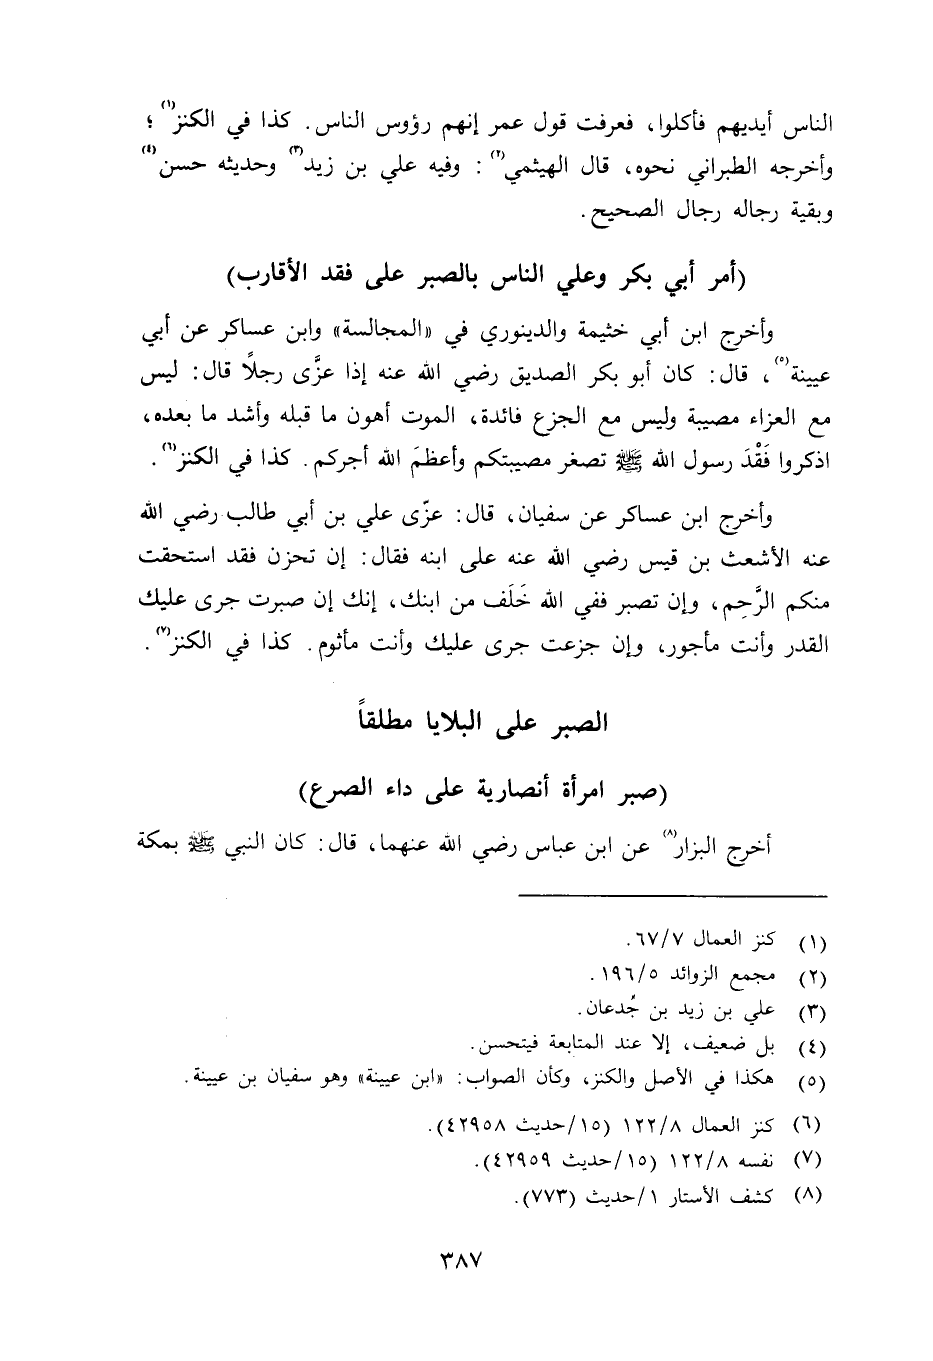 الناس أيديهم فأكلوا، فعرفت قول عمر إنهم رؤوس الناس. كذا في الكنز(١)؛
وأخرجه الطبراني نحوه، قال الهيثمي(٢): وفيه علي بن زيد(٣) وحديثه حسن(٤)
وبقية رجاله رجال الصحيح.
(أمر أبي بكر وعلي الناس بالصبر على فقد الأقارب)
وأخرج ابن أبي خثيمة والدينوري في «المجالسة» وابن عساكر عن أبي
عيينة(٥)، قال: كان أبو بكر الصديق رضي الله عنه إذا عزَّى رجلاً قال: ليس
مع العزاء مصيبة وليس مع الجزع فائدة، الموت أهون ما قبله وأشد ما بعده،
اذكروا فَقْدَ رسول الله ﷺ تصغر مصيبتكم وأعظمَ الله أجركم. كذا في الكنز(٦).
وأخرج ابن عساكر عن سفيان، قال: عزّى علي بن أبي طالب رضي الله
عنه الأشعث بن قيس رضي الله عنه على ابنه فقال: إن تحزن فقد استحقت
منكم الرَّحِم، وإن تصبر ففي الله خَلَف من ابنك، إنك إن صبرت جرى عليك
القدر وأنت مأجور، وإن جزعت جرى عليك وأنت مأثوم. كذا في الكنز(٧).
الصبر على البلايا مطلقاً
(صبر امرأة أنصارية على داء الصرع)
أخرج البزار(٨) عن ابن عباس رضي الله عنهما، قال: كان النبي ﷺ بمكة
(١) كنز العمال ٦٧/٧.
(٢) مجمع الزوائد ١٩٦/٥.
(٣) علي بن زيد بن جُدعان.
(٤) بل ضعيف، إلا عند المتابعة فيتحسن.
(٥) هكذا في الأصل والكنز، وكأن الصواب: «ابن عيينة» وهو سفيان بن عيينة.
(٦) كنز العمال ١٢٢/٨ (١٥/حديث ٤٢٩٥٨).
(٧) نفسه ١٢٢/٨ (١٥/حديث ٤٢٩٥٩).
(٨) كشف الأستار ١/حديث (٧٧٣).
٣٨٧